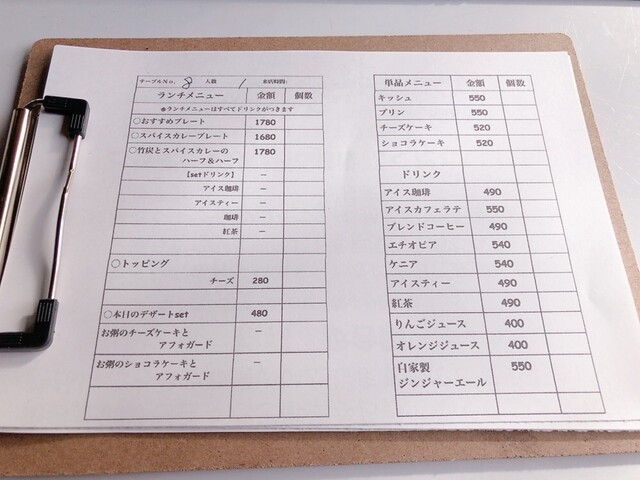 テーブルNo. 8 人数 / 来店時間:
ランチメニュー 金額 個数
※ランチメニューはすべてドリンクがつきます
○おすすめプレート 1780
○スパイスカレープレート 1680
○竹炭とスパイスカレーの 1780
ハーフ&ハーフ
【setドリンク】 −
アイス珈琲 −
アイスティー −
珈琲 −
紅茶 −
○トッピング
チーズ 280
○本日のデザートset 480
お粥のチーズケーキと −
アフォガード
お粥のショコラケーキと −
アフォガード
単品メニュー 金額 個数
キッシュ 550
プリン 550
チーズケーキ 520
ショコラケーキ 520
ドリンク
アイス珈琲 490
アイスカフェラテ 550
ブレンドコーヒー 490
エチオピア 540
ケニア 540
アイスティー 490
紅茶 490
りんごジュース 400
オレンジジュース 400
自家製 550
ジンジャーエール